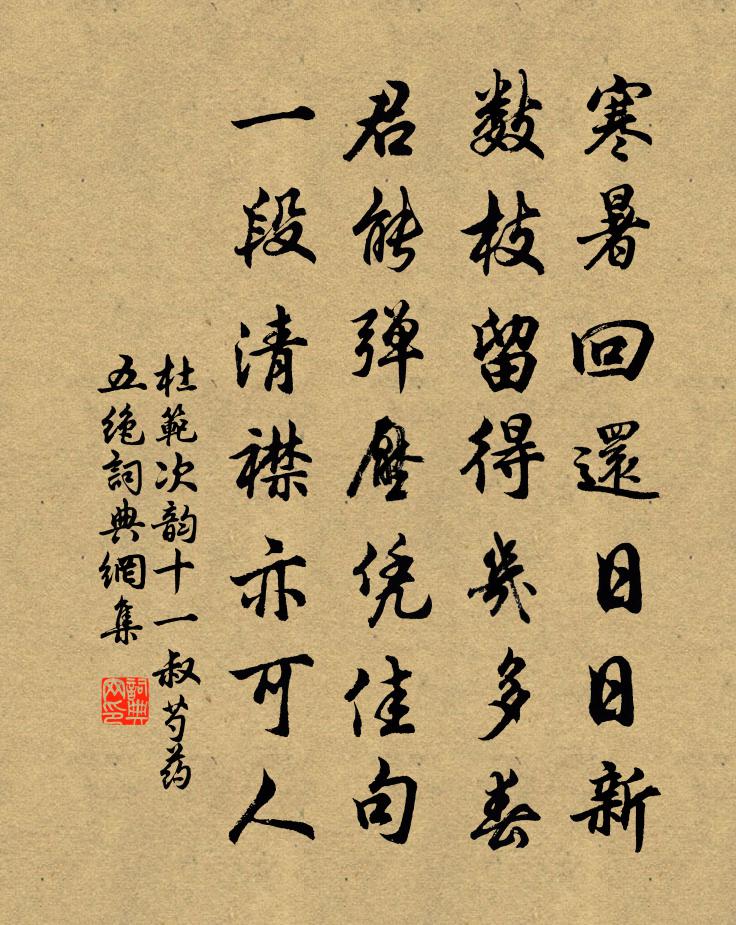 寒暑回還日日新
数枝留得幾多春
君能弹壓凭佳句
一段清襟亦可人
杜範次韵十一叔芍药
五绝詞典網集
詞典网印